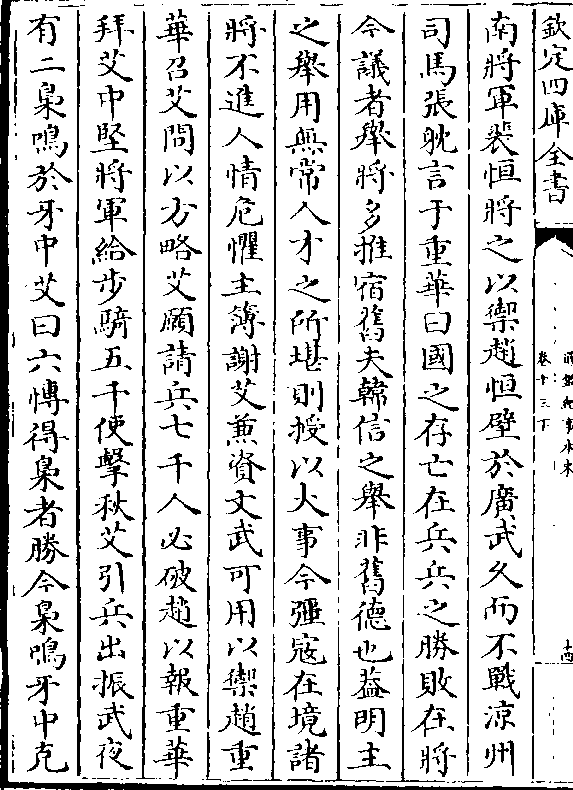 欽定四庫全書
通鑑紀事本末
卷十三下
十四
南將軍裴恒將之以禦趙恒壁於廣武久而不戰涼州
司馬張耽言于重華曰國之存亡在兵兵之勝敗在將
今議者舉將多推宿舊夫韓信之舉非舊德也葢明主
之舉用無常人才之所堪則授以大事今彊寇在境諸
將不進人情危懼主簿謝艾兼資文武可用以禦趙重
華召艾問以方略艾願請兵七千人必破趙以報重華
拜艾中堅將軍給步騎五千使擊秋艾引兵出振武夜
有二梟鳴於牙中艾曰六博得梟者勝今梟鳴牙中克